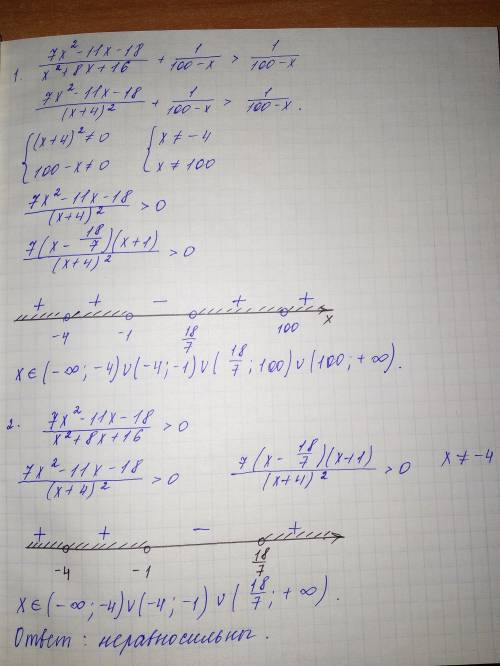 1. (7x²-11x-18)/(x²+8x+16) + 1/(100-x) > 1/(100-x)
(7x²-11x-18)/(x+4)² + 1/(100-x) > 1/(100-x).
{(x+4)²≠0 {x≠-4
{100-x≠0 {x≠100
(7x²-11x-18)/(x+4)² >0
7(x-18/7)(x+1)/(x+4)² >0
+ + - + +
-4 -1 18/7 100 x
x∈(-∞;-4)∪(-4;-1)∪(18/7;100)∪(100;+∞).
2. (7x²-11x-18)/(x²+8x+16) >0
(7x²-11x-18)/(x+4)² >0 7(x-18/7)(x+1)/(x+4)² >0 x≠-4
+ + - +
-4 -1 18/7
x∈(-∞;-4)∪(-4;-1)∪(18/7;+∞).
Ответ: неравносильны.